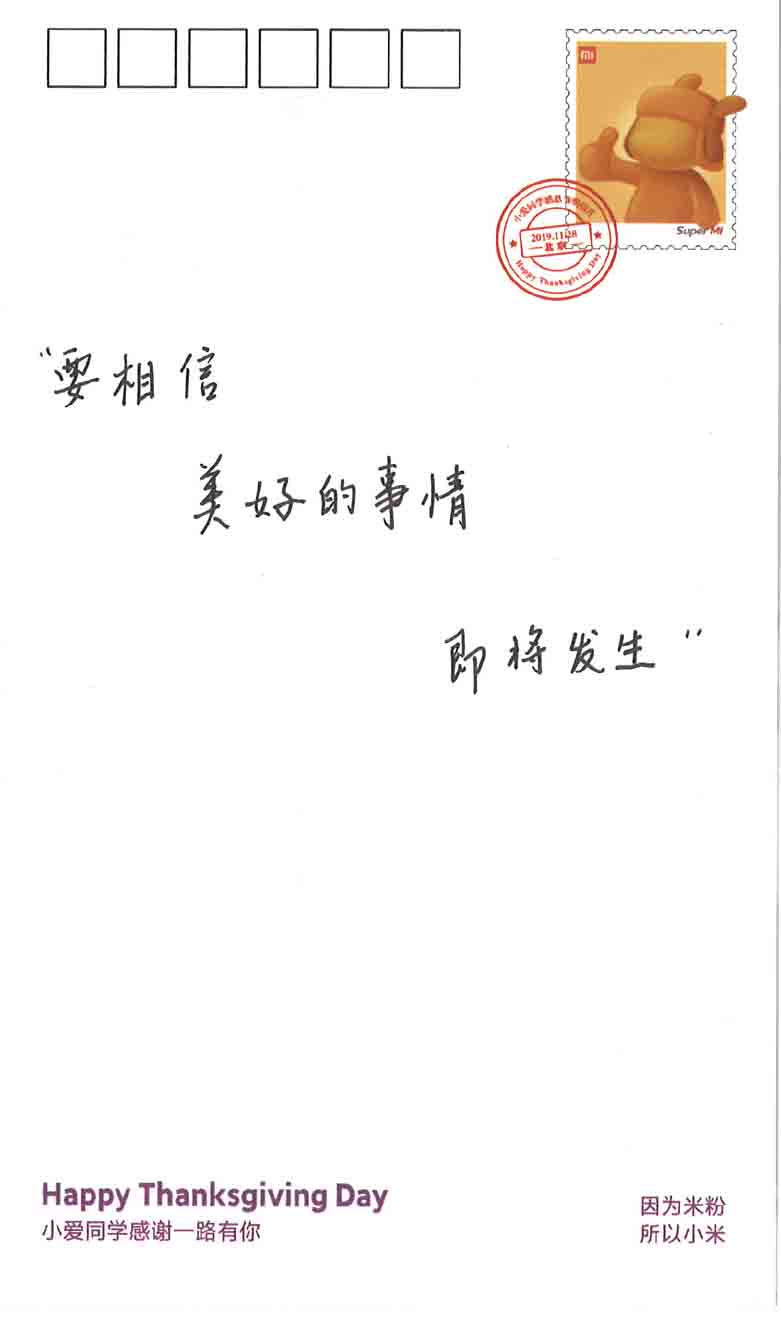 mi
Super MI
小爱同学感恩
2019.11.28
北京
Happy Thanksgiving Day
“要相信
美好的事情
即将发生”
Happy Thanksgiving Day
小爱同学感谢一路有你
因为米粉
所以小米